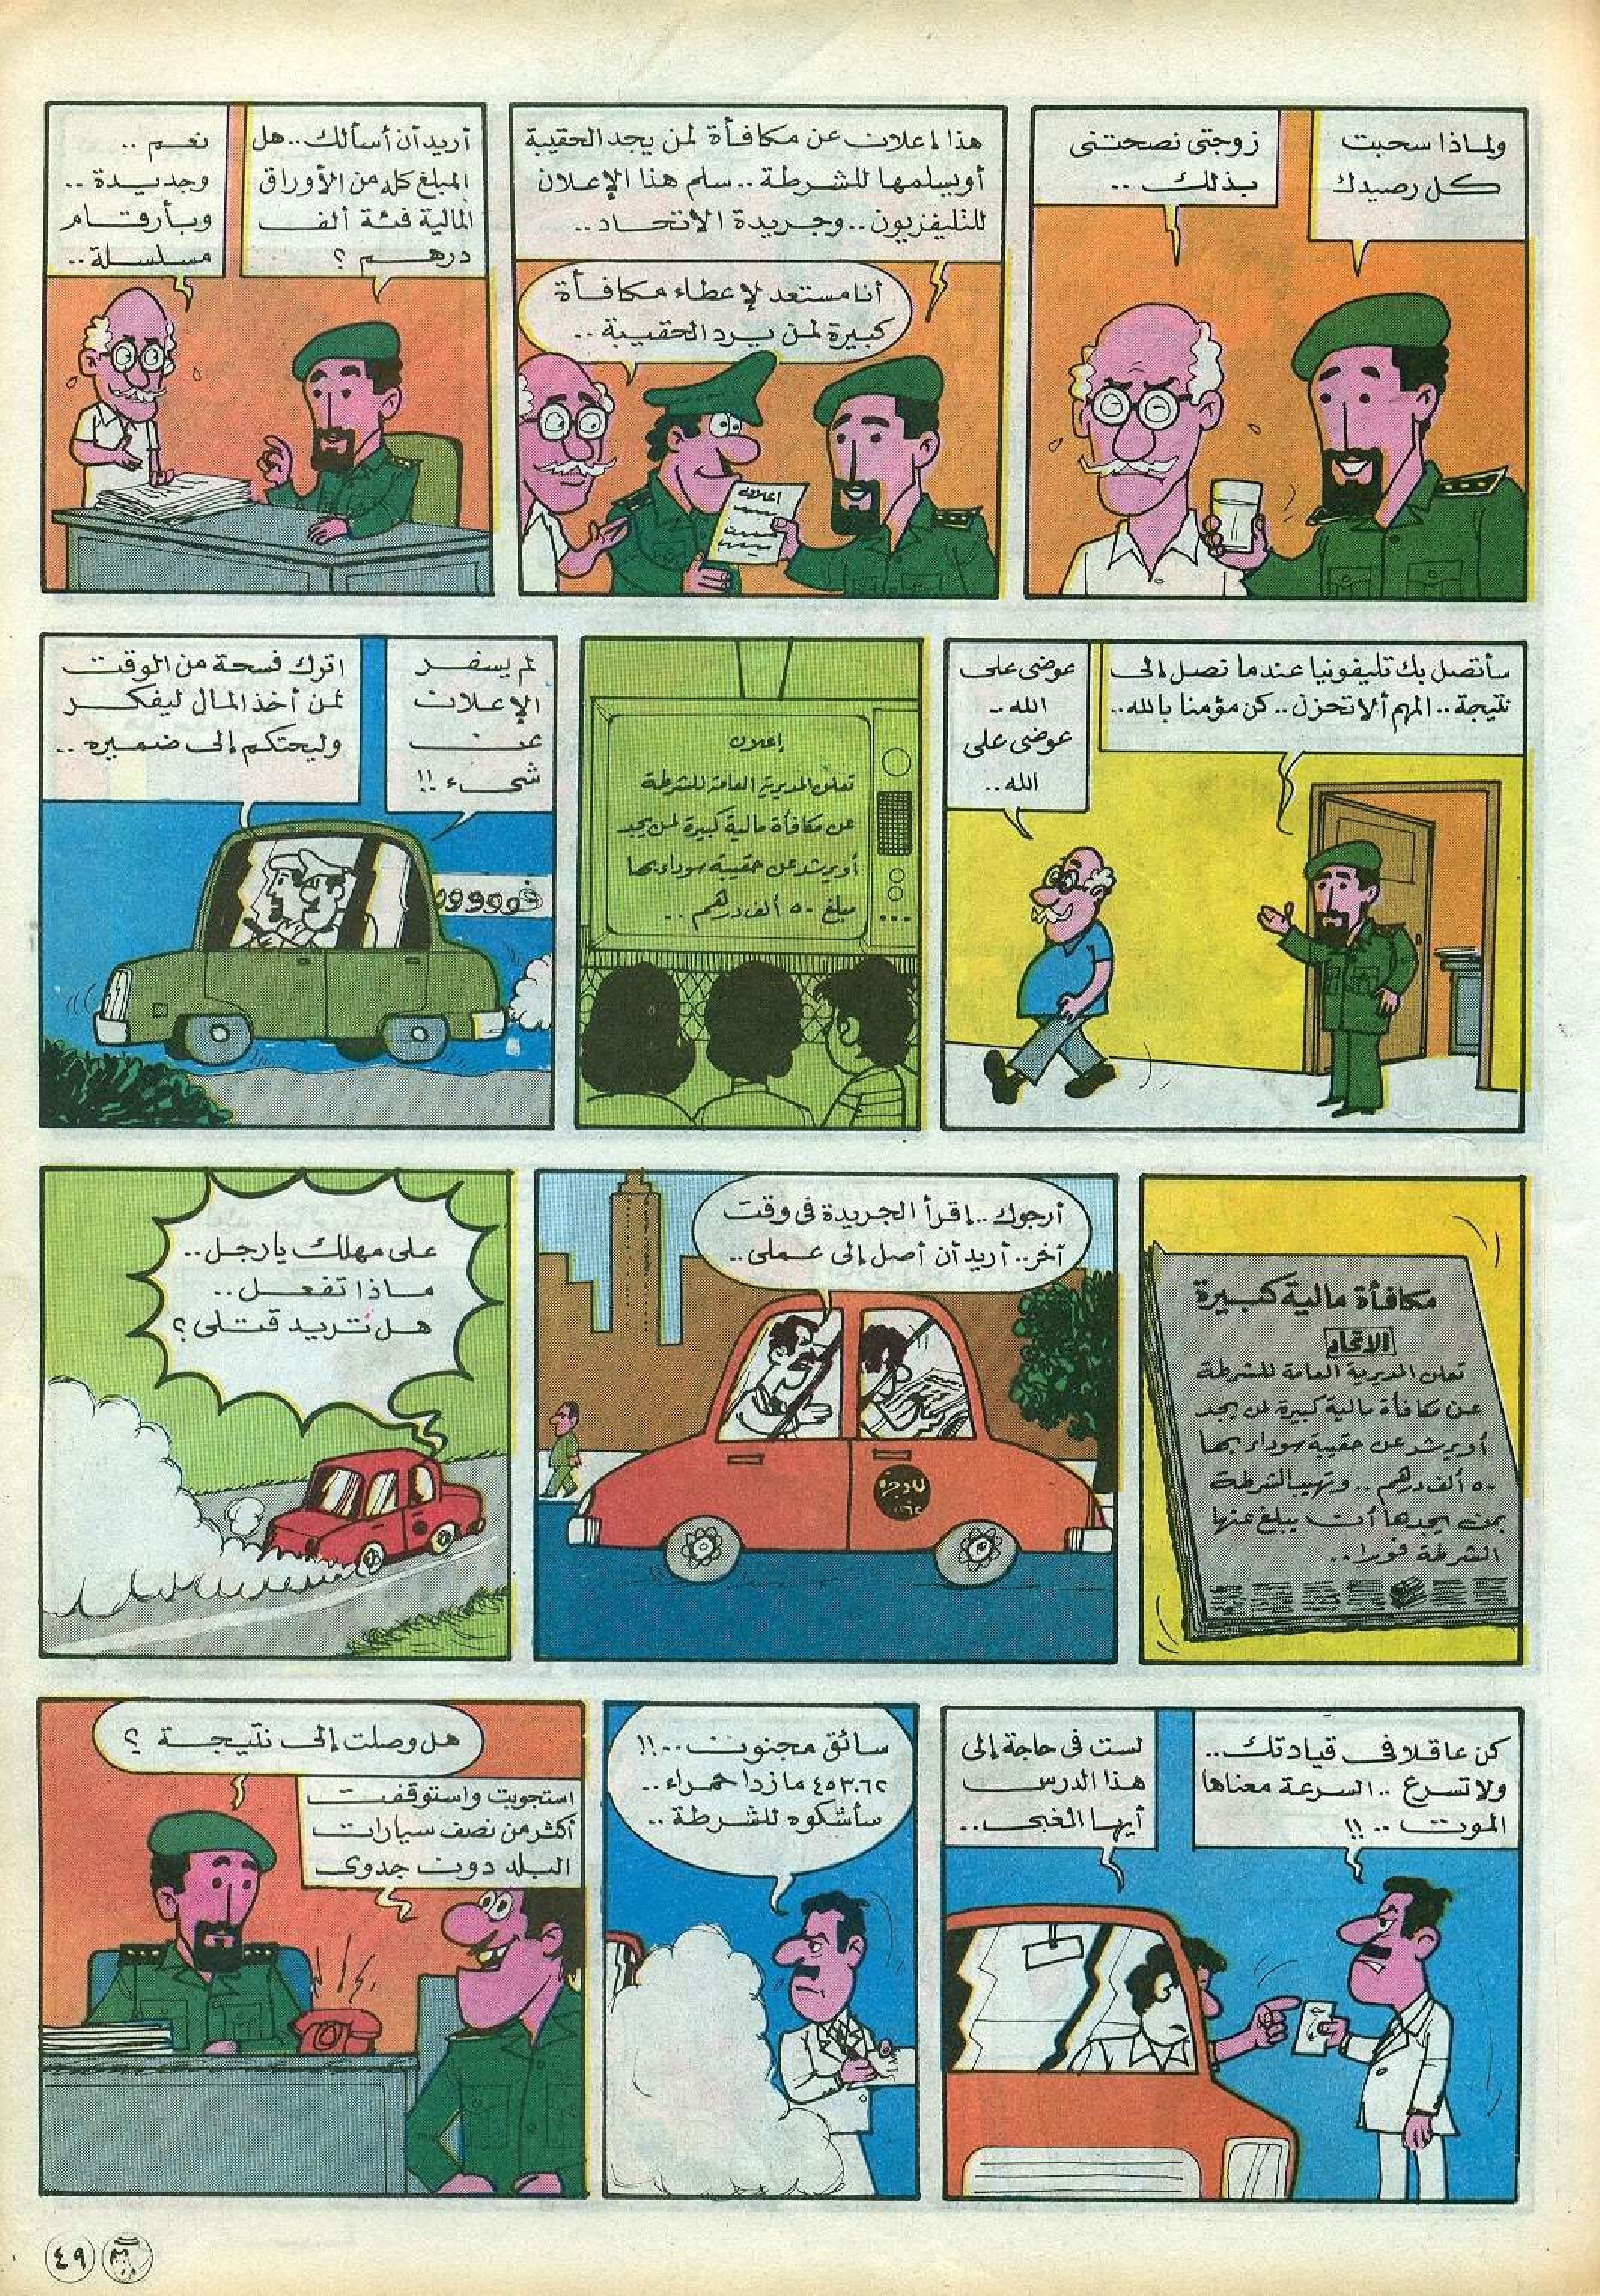 ولماذا سحبت
كل رصيدك
زوجتى نصحتنى
بذلك ..
هذا إعلان عن مكافأة لمن يجد الحقيبة
أو يسلمها للشرطة .. سلم هذا الإعلان
للتليفزيون .. وجريدة الاتحاد ..
أنا مستعد لإعطاء مكافأة
كبيرة لمن يرد الحقيبة ..
إعلان
أريد أن أسألك .. هل
المبلغ كله من الأوراق
المالية فئة ألف
درهم ؟
نعم ..
وجديدة ..
وبأرقام
مسلسلة ..
سأتصل بك تليفونيا عندما نصل إلى
نتيجة .. المهم ألا تحزن .. كن مؤمنا بالله ..
عوضى على
الله ..
عوضى على
الله ..
إعلان
تعلن المديرية العامة للشرطة
عن مكافأة مالية كبيرة لمن يجد
أو يرشد عن حقيبة سوداء بها
مبلغ ٥٠ ألف درهم ..
لم يسفر
الإعلان
عن
شىء !!
اترك فسحة من الوقت
لمن أخذ المال ليفكر
وليحتكم إلى ضميره ..
مكافأة مالية كبيرة
الاتحاد
تعلن المديرية العامة للشرطة
عن مكافأة مالية كبيرة لمن يجد
أو يرشد عن حقيبة سوداء بها
٥٠ ألف درهم .. وتهيب الشرطة
بمن يجدها أن يبلغ عنها
الشرطة فورا ..
أرجوك .. إقرأ الجريدة فى وقت
آخر .. أريد أن أصل إلى عملى ..
على مهلك يا رجل ..
ماذا تفعل ..
هل تريد قتلى ؟
كن عاقلا فى قيادتك ..
ولا تسرع .. السرعة معناها
الموت .. !!
لست فى حاجة إلى
هذا الدرس
أيها الغبى ..
سائق مجنون .. !!
٤٥٣٠٦٢ مازدا حمراء ..
سأشكوه للشرطة ..
هل وصلت إلى نتيجة ؟
استجوبت واستوقفت
أكثر من نصف سيارات
البلد دون جدوى
٤٩